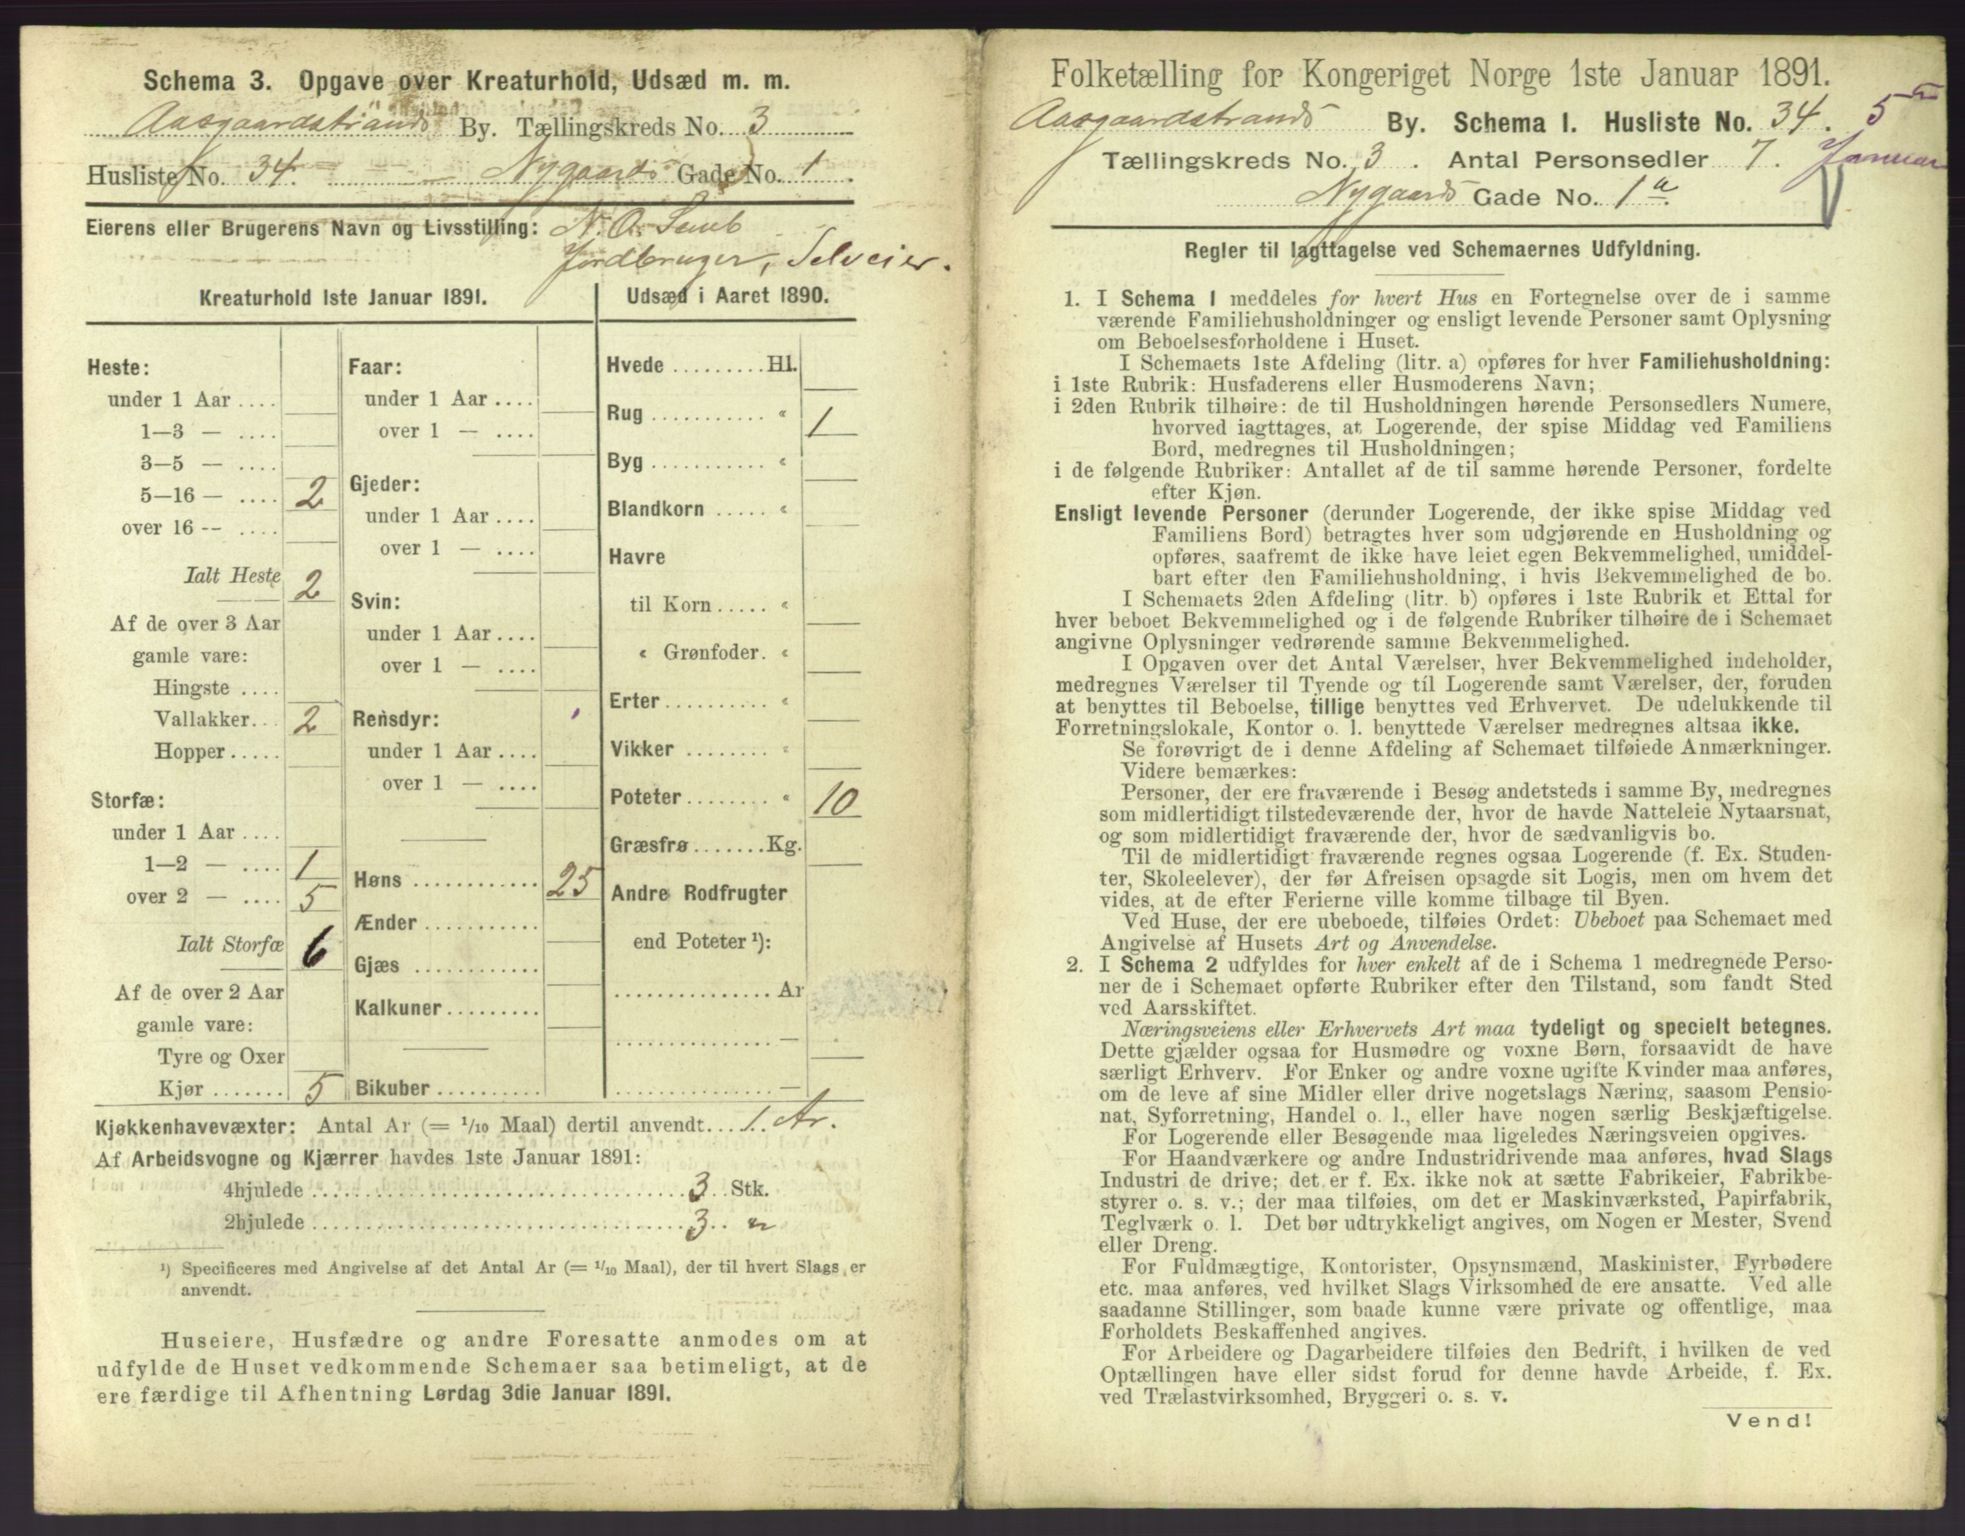 Schema 3. Opgave over Kreaturhold, Udsæd m. m.
Aasgaardstrands By. Tællingskreds No. 3
Husliste No. 34. Nygaards Gade No. 1.
Eierens eller Brugerens Navn og Livsstilling: N. A. Semb
Jordbruger, Selveier.
Kreaturhold 1ste Januar 1891.
Heste:
under 1 Aar ....
1—3 — ....
3—5 — ....
5—16 — .... 2
over 16 -- ....
Ialt Heste 2
Af de over 3 Aar
gamle vare:
Hingste ....
Vallakker... 2
Hopper.....
Storfæ:
under 1 Aar ....
1—2 — .... 1
over 2 — .... 5
Ialt Storfæ 6
Af de over 2 Aar
gamle vare:
Tyre og Oxer
Kjør ....... 5
Faar:
under 1 Aar ....
over 1 — ....
Gjeder:
under 1 Aar ....
over 1 — ....
Svin:
under 1 Aar ....
over 1 — ....
Rensdyr:
under 1 Aar ....
over 1 — ....
Høns ............ 25
Ænder ...........
Gjæs ............
Kalkuner.........
Bikuber..........
Udsæd i Aaret 1890.
Hvede ......... Hl.
Rug ........... “ 1
Byg ........... “
Blandkorn ..... “
Havre
til Korn ..... “
“ Grønfoder. “
Erter.......... “
Vikker ........ “
Poteter........ “ 10
Græsfrø....... Kg.
Andre Rodfrugter
end Poteter ¹):
............... Ar
............... —
............... —
Kjøkkenhavevæxter: Antal Ar (= 1/10 Maal) dertil anvendt... 1. Ar.
Af Arbeidsvogne og Kjærrer havdes 1ste Januar 1891:
4hjulede .................... 3 Stk.
2hjulede .................... 3 „
¹) Specificeres med Angivelse af det Antal Ar (= 1/10 Maal), der til hvert Slags er
anvendt.
Huseiere, Husfædre og andre Foresatte anmodes om at
udfylde de Huset vedkommende Schemaer saa betimeligt, at de
ere færdige til Afhentning Lørdag 3die Januar 1891.
Folketælling for Kongeriget Norge 1ste Januar 1891.
Aasgaardstrands By. Schema 1. Husliste No. 34. 5te
Tællingskreds No. 3. Antal Personsedler 7. Januar
Nygaards Gade No. 1a.
Regler til Iagttagelse ved Schemaernes Udfyldning.
1. I Schema 1 meddeles for hvert Hus en Fortegnelse over de i samme
værende Familiehusholdninger og ensligt levende Personer samt Oplysning
om Beboelsesforholdene i Huset.
I Schemaets 1ste Afdeling (litr. a) opføres for hver Familiehusholdning:
i 1ste Rubrik: Husfaderens eller Husmoderens Navn;
i 2den Rubrik tilhøire: de til Husholdningen hørende Personsedlers Numere,
hvorved iagttages, at Logerende, der spise Middag ved Familiens
Bord, medregnes til Husholdningen;
i de følgende Rubriker: Antallet af de til samme hørende Personer, fordelte
efter Kjøn.
Ensligt levende Personer (derunder Logerende, der ikke spise Middag ved
Familiens Bord) betragtes hver som udgjørende en Husholdning og
opføres, saafremt de ikke have leiet egen Bekvemmelighed, umiddel-
bart efter den Familiehusholdning, i hvis Bekvemmelighed de bo.
I Schemaets 2den Afdeling (litr. b) opføres i 1ste Rubrik et Ettal for
hver beboet Bekvemmelighed og i de følgende Rubriker tilhøire de i Schemaet
angivne Oplysninger vedrørende samme Bekvemmelighed.
I Opgaven over det Antal Værelser, hver Bekvemmelighed indeholder,
medregnes Værelser til Tyende og til Logerende samt Værelser, der, foruden
at benyttes til Beboelse, tillige benyttes ved Erhvervet. De udelukkende til
Forretningslokale, Kontor o. l. benyttede Værelser medregnes altsaa ikke.
Se forøvrigt de i denne Afdeling af Schemaet tilføiede Anmærkninger.
Videre bemærkes:
Personer, der ere fraværende i Besøg andetsteds i samme By, medregnes
som midlertidigt tilstedeværende der, hvor de havde Natteleie Nytaarsnat,
og som midlertidigt fraværende der, hvor de sædvanligvis bo.
Til de midlertidigt fraværende regnes ogsaa Logerende (f. Ex. Studen-
ter, Skoleelever), der før Afreisen opsagde sit Logis, men om hvem det
vides, at de efter Ferierne ville komme tilbage til Byen.
Ved Huse, der ere ubeboede, tilføies Ordet: Ubeboet paa Schemaet med
Angivelse af Husets Art og Anvendelse.
2. I Schema 2 udfyldes for hver enkelt af de i Schema 1 medregnede Perso-
ner de i Schemaet opførte Rubriker efter den Tilstand, som fandt Sted
ved Aarsskiftet.
Næringsveiens eller Erhvervets Art maa tydeligt og specielt betegnes.
Dette gjælder ogsaa for Husmødre og voxne Børn, forsaavidt de have
særligt Erhverv. For Enker og andre voxne ugifte Kvinder maa anføres,
om de leve af sine Midler eller drive nogetslags Næring, saasom Pensio-
nat, Syforretning, Handel o. l., eller have nogen særlig Beskjæftigelse.
For Logerende eller Besøgende maa ligeledes Næringsveien opgives.
For Haandværkere og andre Industridrivende maa anføres, hvad Slags
Industri de drive; det er f. Ex. ikke nok at sætte Fabrikeier, Fabrikbe-
styrer o. s. v.; der maa tilføies, om det er Maskinværksted, Papirfabrik,
Teglværk o. l. Det bør udtrykkeligt angives, om Nogen er Mester, Svend
eller Dreng.
For Fuldmægtige, Kontorister, Opsynsmænd, Maskinister, Fyrbødere
etc. maa anføres, ved hvilket Slags Virksomhed de ere ansatte. Ved alle
saadanne Stillinger, som baade kunne være private og offentlige, maa
Forholdets Beskaffenhed angives.
For Arbeidere og Dagarbeidere tilføies den Bedrift, i hvilken de ved
Optællingen have eller sidst forud for denne havde Arbeide, f. Ex.
ved Trælastvirksomhed, Bryggeri o. s. v.
Vend!